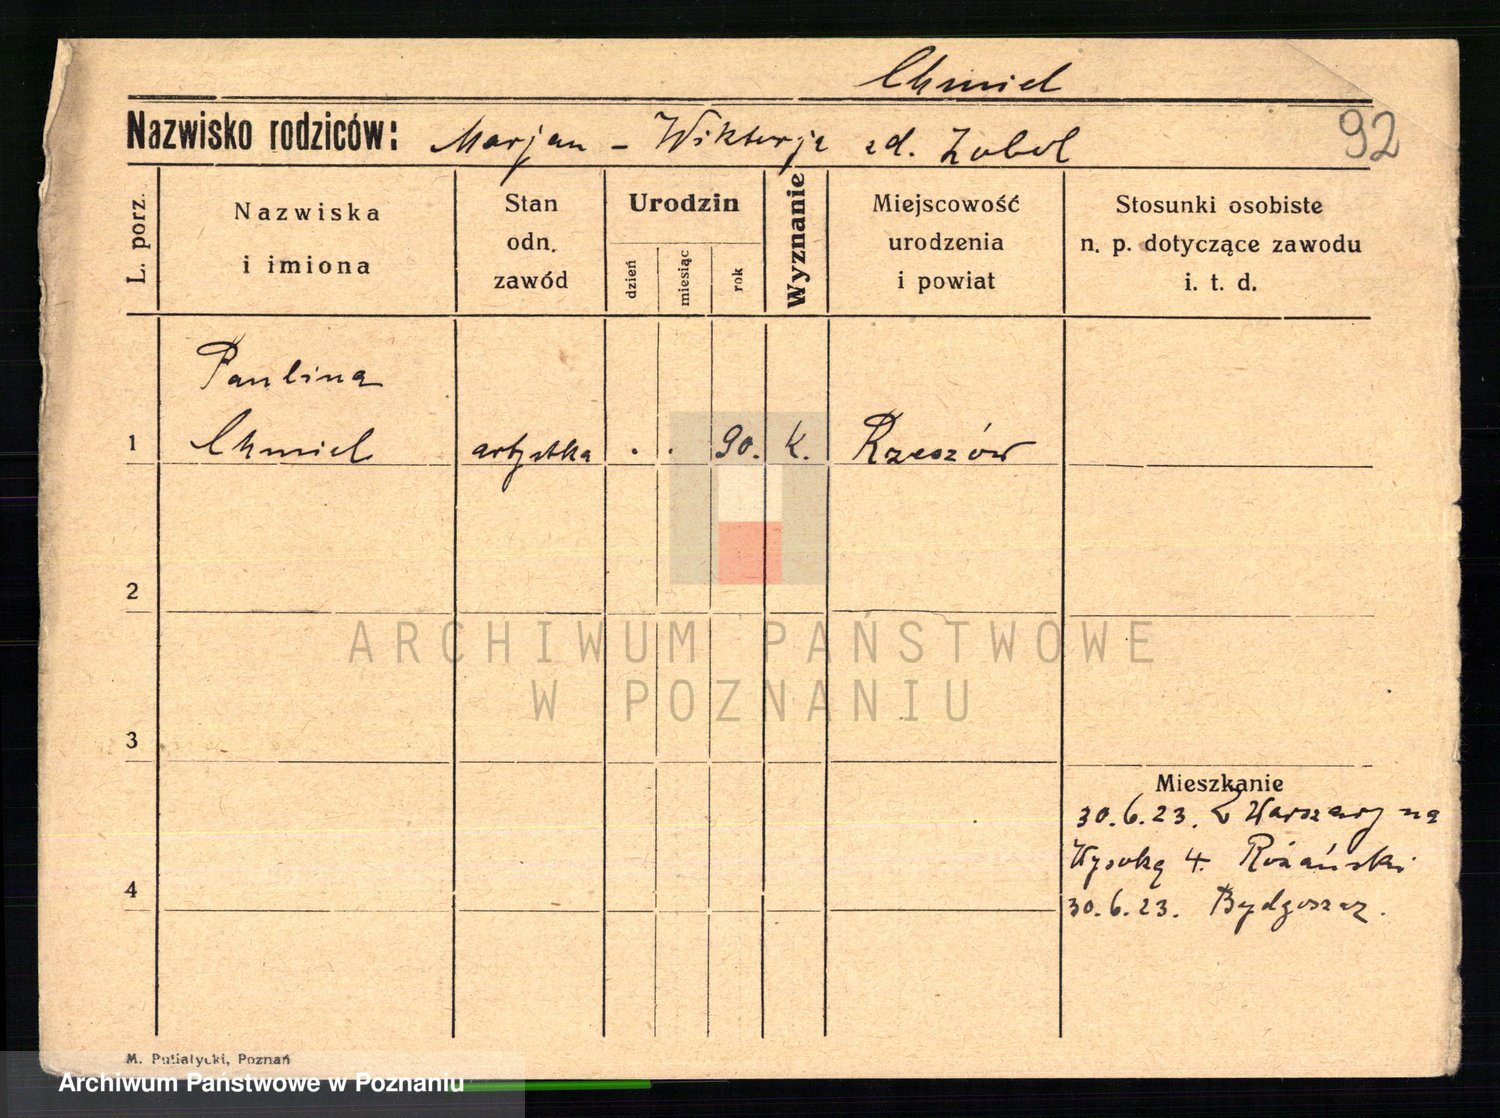 Chmiel
92
Nazwisko rodziców: Marjan – Wiktorja zd. Zobel
L. porz.
Nazwiska
i imiona
Stan
odn.
zawód
Urodzin
dzień
miesiąc
rok
Wyznanie
Miejscowość
urodzenia
i powiat
Stosunki osobiste
n. p. dotyczące zawodu
i. t. d.
Paulina
1 Chmiel artystka . . 90. k. Rzeszów
2
ARCHIWUM PAŃSTWOWE
W POZNANIU
3
Mieszkanie
30.6.23. Z Warszawy na
Wysoką 4. Różański
4
30.6.23. Bydgoszcz.
M. Putiatycki, Poznań
Archiwum Państwowe w Poznaniu